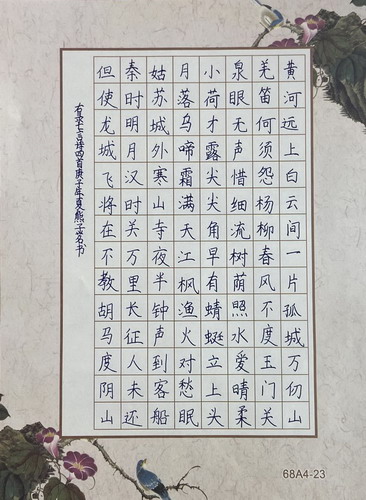 黄河远上白云间一片孤城万仞山
羌笛何须怨杨柳春风不度玉门关
泉眼无声惜细流树荫照水爱晴柔
小荷才露尖尖角早有蜻蜓立上头
月落乌啼霜满天江枫渔火对愁眠
姑苏城外寒山寺夜半钟声到客船
秦时明月汉时关万里长征人未还
但使龙城飞将在不教胡马度阴山
右录七言诗四首庚子年夏熊子茗书
68A4-23